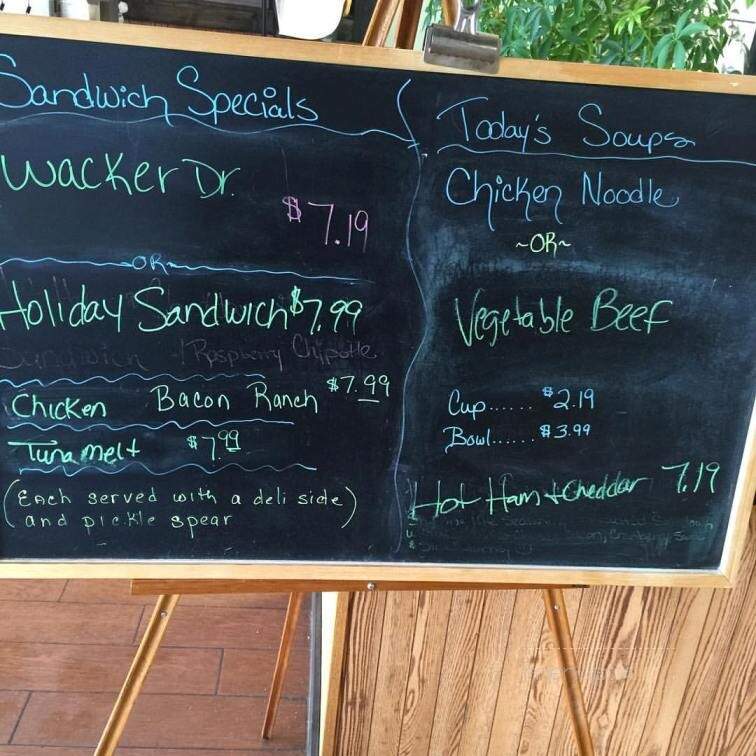 Sandwich Specials
Wacker Dr.
$7.19
~OR~
Holiday Sandwich $7.99
Sandwich Raspberry Chipotle
Chicken Bacon Ranch $7.99
Tuna melt $7.99
(Each served with a deli side
and pickle spear)
Today's Soups
Chicken Noodle
~OR~
Vegetable Beef
Cup...... $2.19
Bowl...... $3.99
Hot Ham + Cheddar 7.19